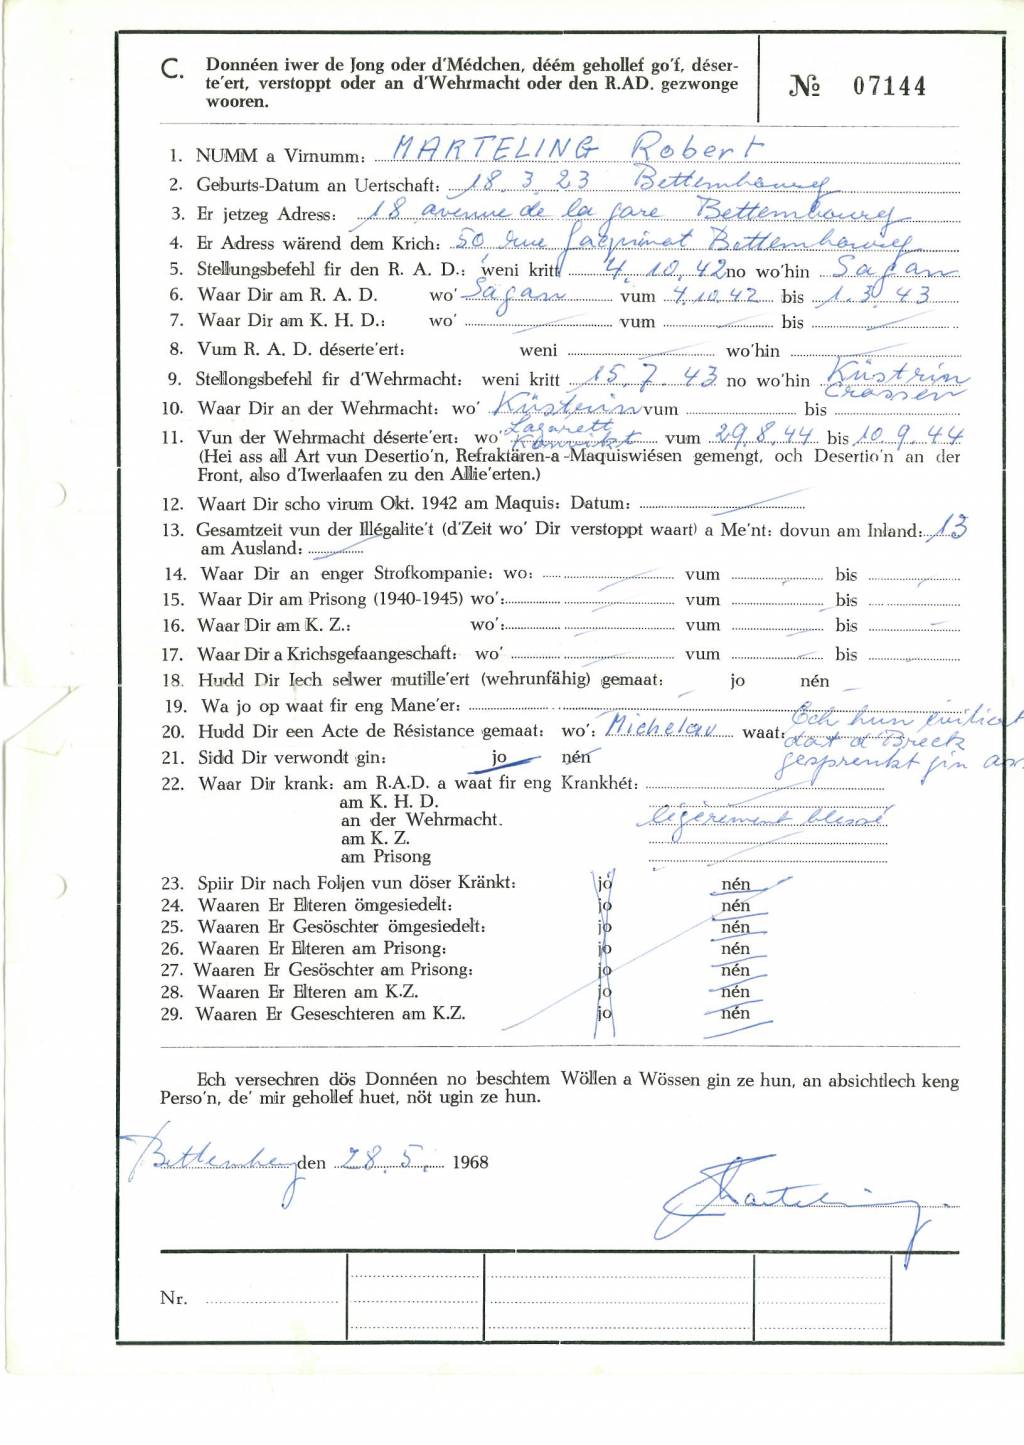 C. Donnéen iwer de Jong oder d'Médchen, déém gehollef go'f, déser-
te'ert, verstoppt oder an d'Wehrmacht oder den R.AD. gezwonge
wooren.
№ 07144
1. NUMM a Virnumm: MARTELING Robert
2. Geburts-Datum an Uertschaft: 18. 3. 23 Bettembourg
3. Er jetzeg Adress: 18 avenue de la gare Bettembourg
4. Er Adress wärend dem Krich: 50, rue Jacquinot Bettembourg
5. Stellungsbefehl fir den R. A. D.: weni kritt 4. 10. 42 no wo'hin Sagan
6. Waar Dir am R. A. D. wo' Sagan vum 4.10.42 bis 1. 3. 43
7. Waar Dir am K. H. D.: wo' vum bis
8. Vum R. A. D. déserte'ert: weni wo'hin
9. Stellongsbefehl fir d'Wehrmacht: weni kritt 15. 7. 43 no wo'hin Küstrin
Crossen
10. Waar Dir an der Wehrmacht: wo' Küstrin vum bis
Lazarett
11. Vun der Wehrmacht déserte'ert: wo' Konvikt vum 29.8.44 bis 10.9.44
(Hei ass all Art vun Desertio'n, Refraktären-a-Maquiswiésen gemengt, och Desertio'n an der
Front, also d'Iwerlaafen zu den Allie'erten.)
12. Waart Dir scho virum Okt. 1942 am Maquis: Datum:
13. Gesamtzeit vun der Illégalite't (d'Zeit wo' Dir verstoppt waart) a Me'nt: dovun am Inland: 13
am Ausland:
14. Waar Dir an enger Strofkompanie: wo: vum bis
15. Waar Dir am Prisong (1940-1945) wo': vum bis
16. Waar Dir am K. Z.: wo': vum bis
17. Waar Dir a Krichsgefaangeschaft: wo' vum bis
18. Hudd Dir Iech selwer mutille'ert (wehrunfähig) gemaat: jo nén
19. Wa jo op waat fir eng Mane'er:
20. Hudd Dir een Acte de Résistance gemaat: wo': Michelau waat: Ech hun
dat d'Breck
gesprenkt gin
21. Sidd Dir verwondt gin: jo nén
22. Waar Dir krank: am R.A.D. a waat fir eng Krankhét:
am K. H. D.
an der Wehrmacht. légèrement blessé
am K. Z.
am Prisong
23. Spiir Dir nach Foljen vun döser Kränkt: jo nén
24. Waaren Er Elteren ömgesiedelt: jo nén
25. Waaren Er Gesöschter ömgesiedelt: jo nén
26. Waaren Er Elteren am Prisong: jo nén
27. Waaren Er Gesöschter am Prisong: jo nén
28. Waaren Er Elteren am K.Z. jo nén
29. Waaren Er Geseschteren am K.Z. jo nén
Ech versechren dös Donnéen no beschtem Wöllen a Wössen gin ze hun, an absichtlech keng
Perso'n, de' mir gehollef huet, nöt ugin ze hun.
Bettemberg den 28. 5. 1968
Marteling
Nr.